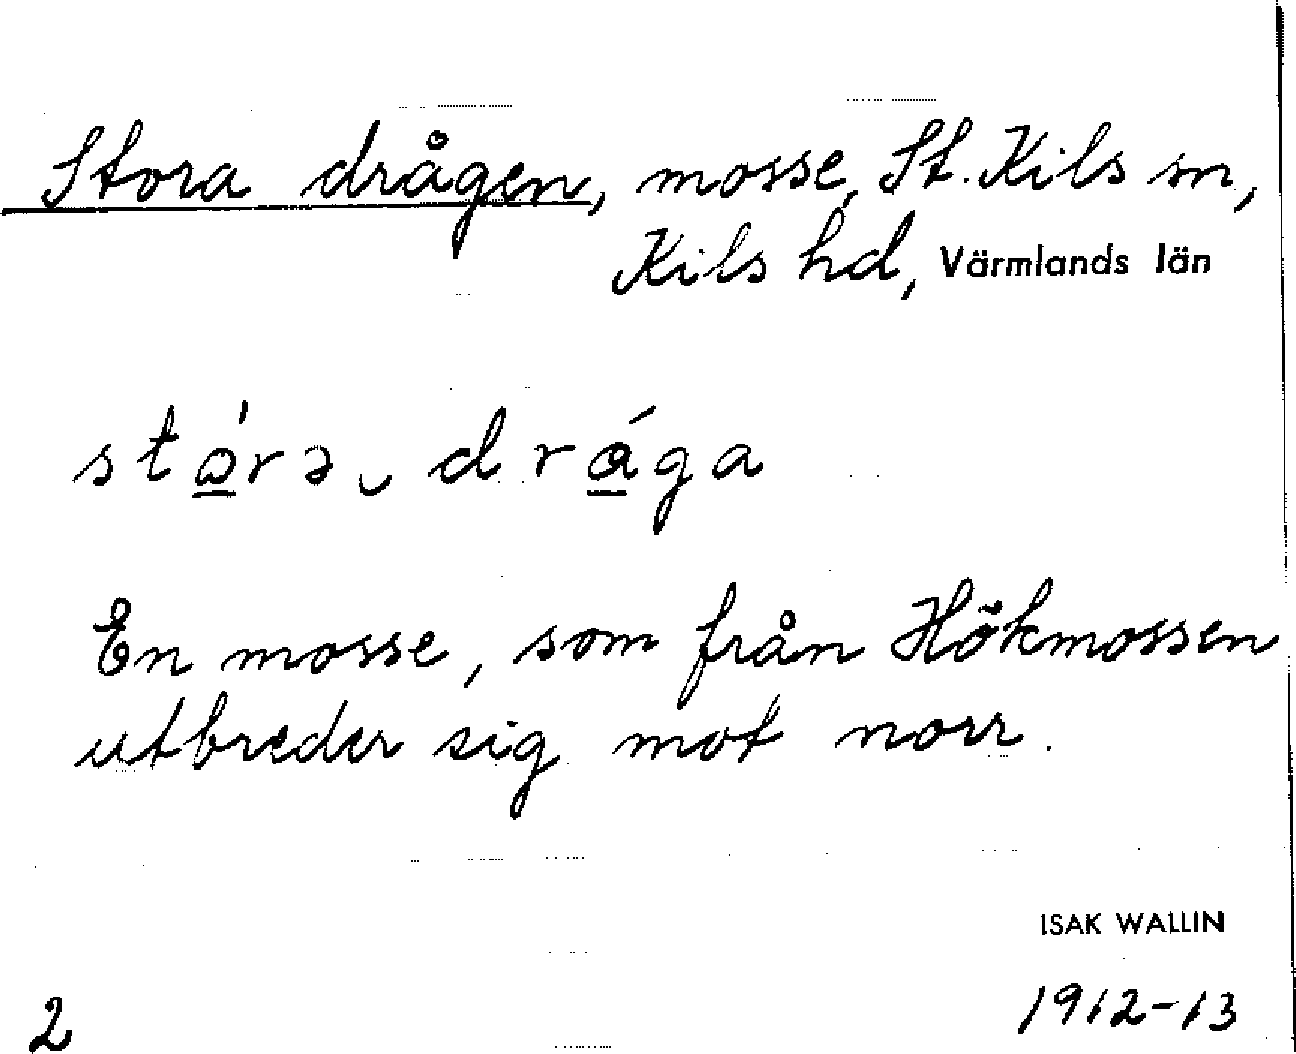 Stora drågen, mosse, St. Kils sn,
Kils hd, Värmlands län
stɷ̠́rə‿drá̠ga
En mosse, som från Hökmossen
utbreder sig mot norr.
ISAK WALLIN
2 1912-13